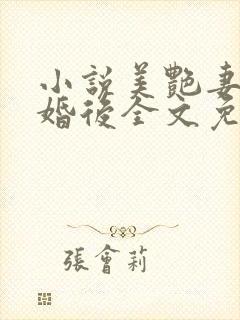 小說美艷妻
婚後全文免
張會莉